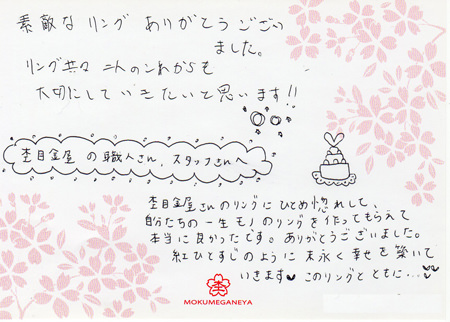 素敵な リング ありがとう ござい
ました。
リング共々 二人のこれからも
大切にして いきたいと思います!!
杢目金屋 の 職人さん、スタッフさんへ
杢目金屋さんのリングに ひとめ惚れして、
自分たちの 一生モノ のリングを作ってもらえて
本当に 良かったです。ありがとうございました。
紅ひとすじのように 末永く 幸せを 築いて
いきます♥ このリングと ともに…♥♥
MOKUMEGANEYA